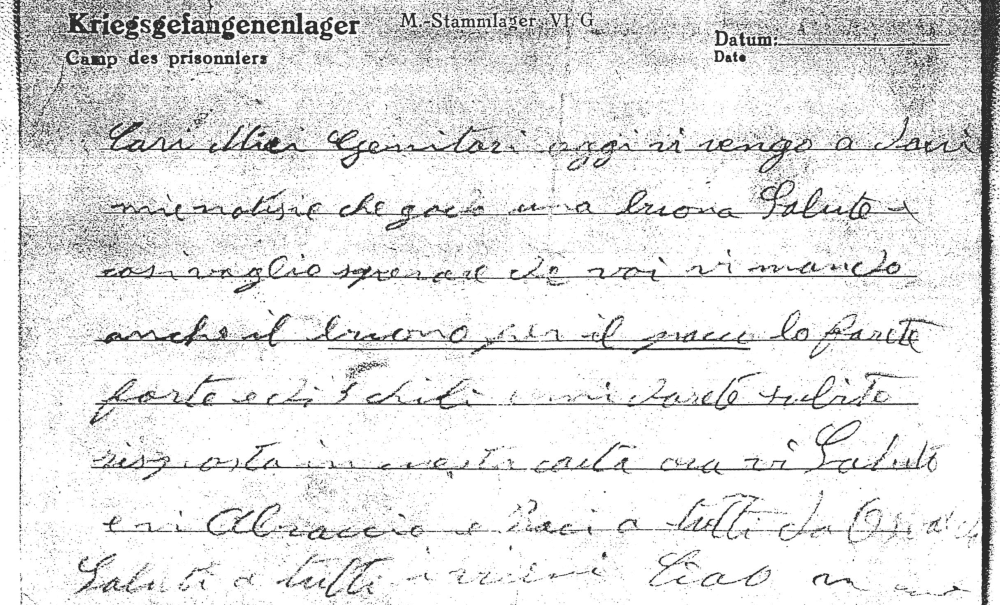 Kriegsgefangenenlager M.-Stammlager VI G
Camp des prisonniers
Datum:
Date
Cari Miei Genitori oggi vi vengo a darvi
mie notisie che godo una buona Salute e
cosi voglio sperare che voi vi mando
anche il buono per il pacco lo farete
forte e di 5 chili e mi darete subito
risposta in questa carta ora vi Saluto
e vi Abraccio e Baci a tutti da
Saluti a tutti i vicini Ciao